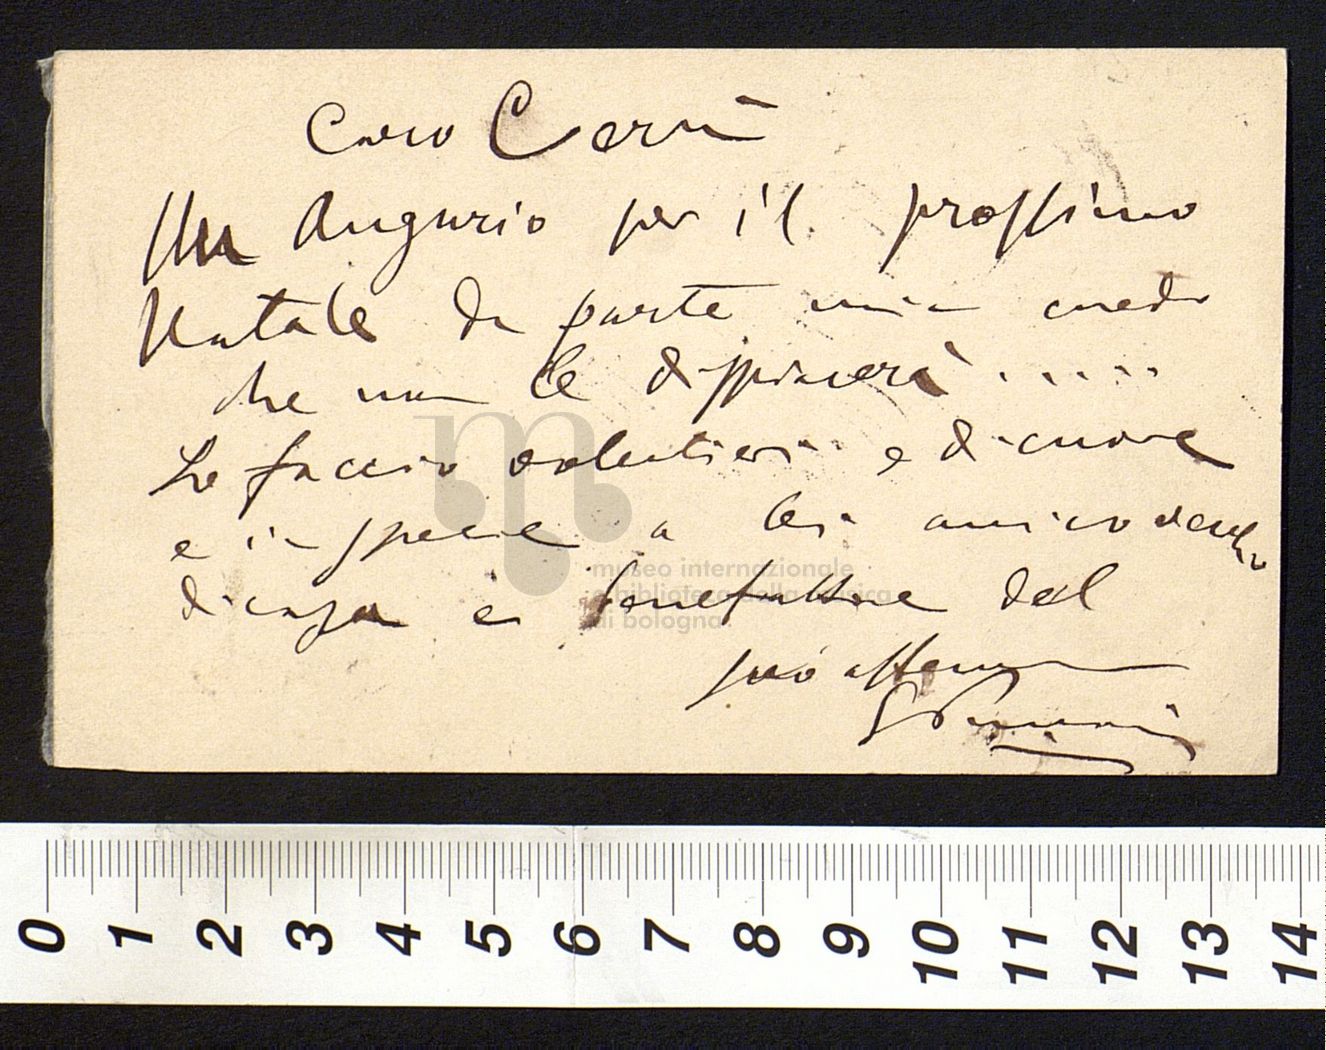 Caro Cerù
Un Augurio per il prossimo
Natale da parte mia credo
che non le dispiacerà .....
Lo faccio volentieri e di cuore
e in specie a lei amico vecchio
di casa e benefattore del
suo affemo
GPuccini
museo internazionale
e biblioteca della musica
di bologna
0 1 2 3 4 5 6 7 8 9 10 11 12 13 14